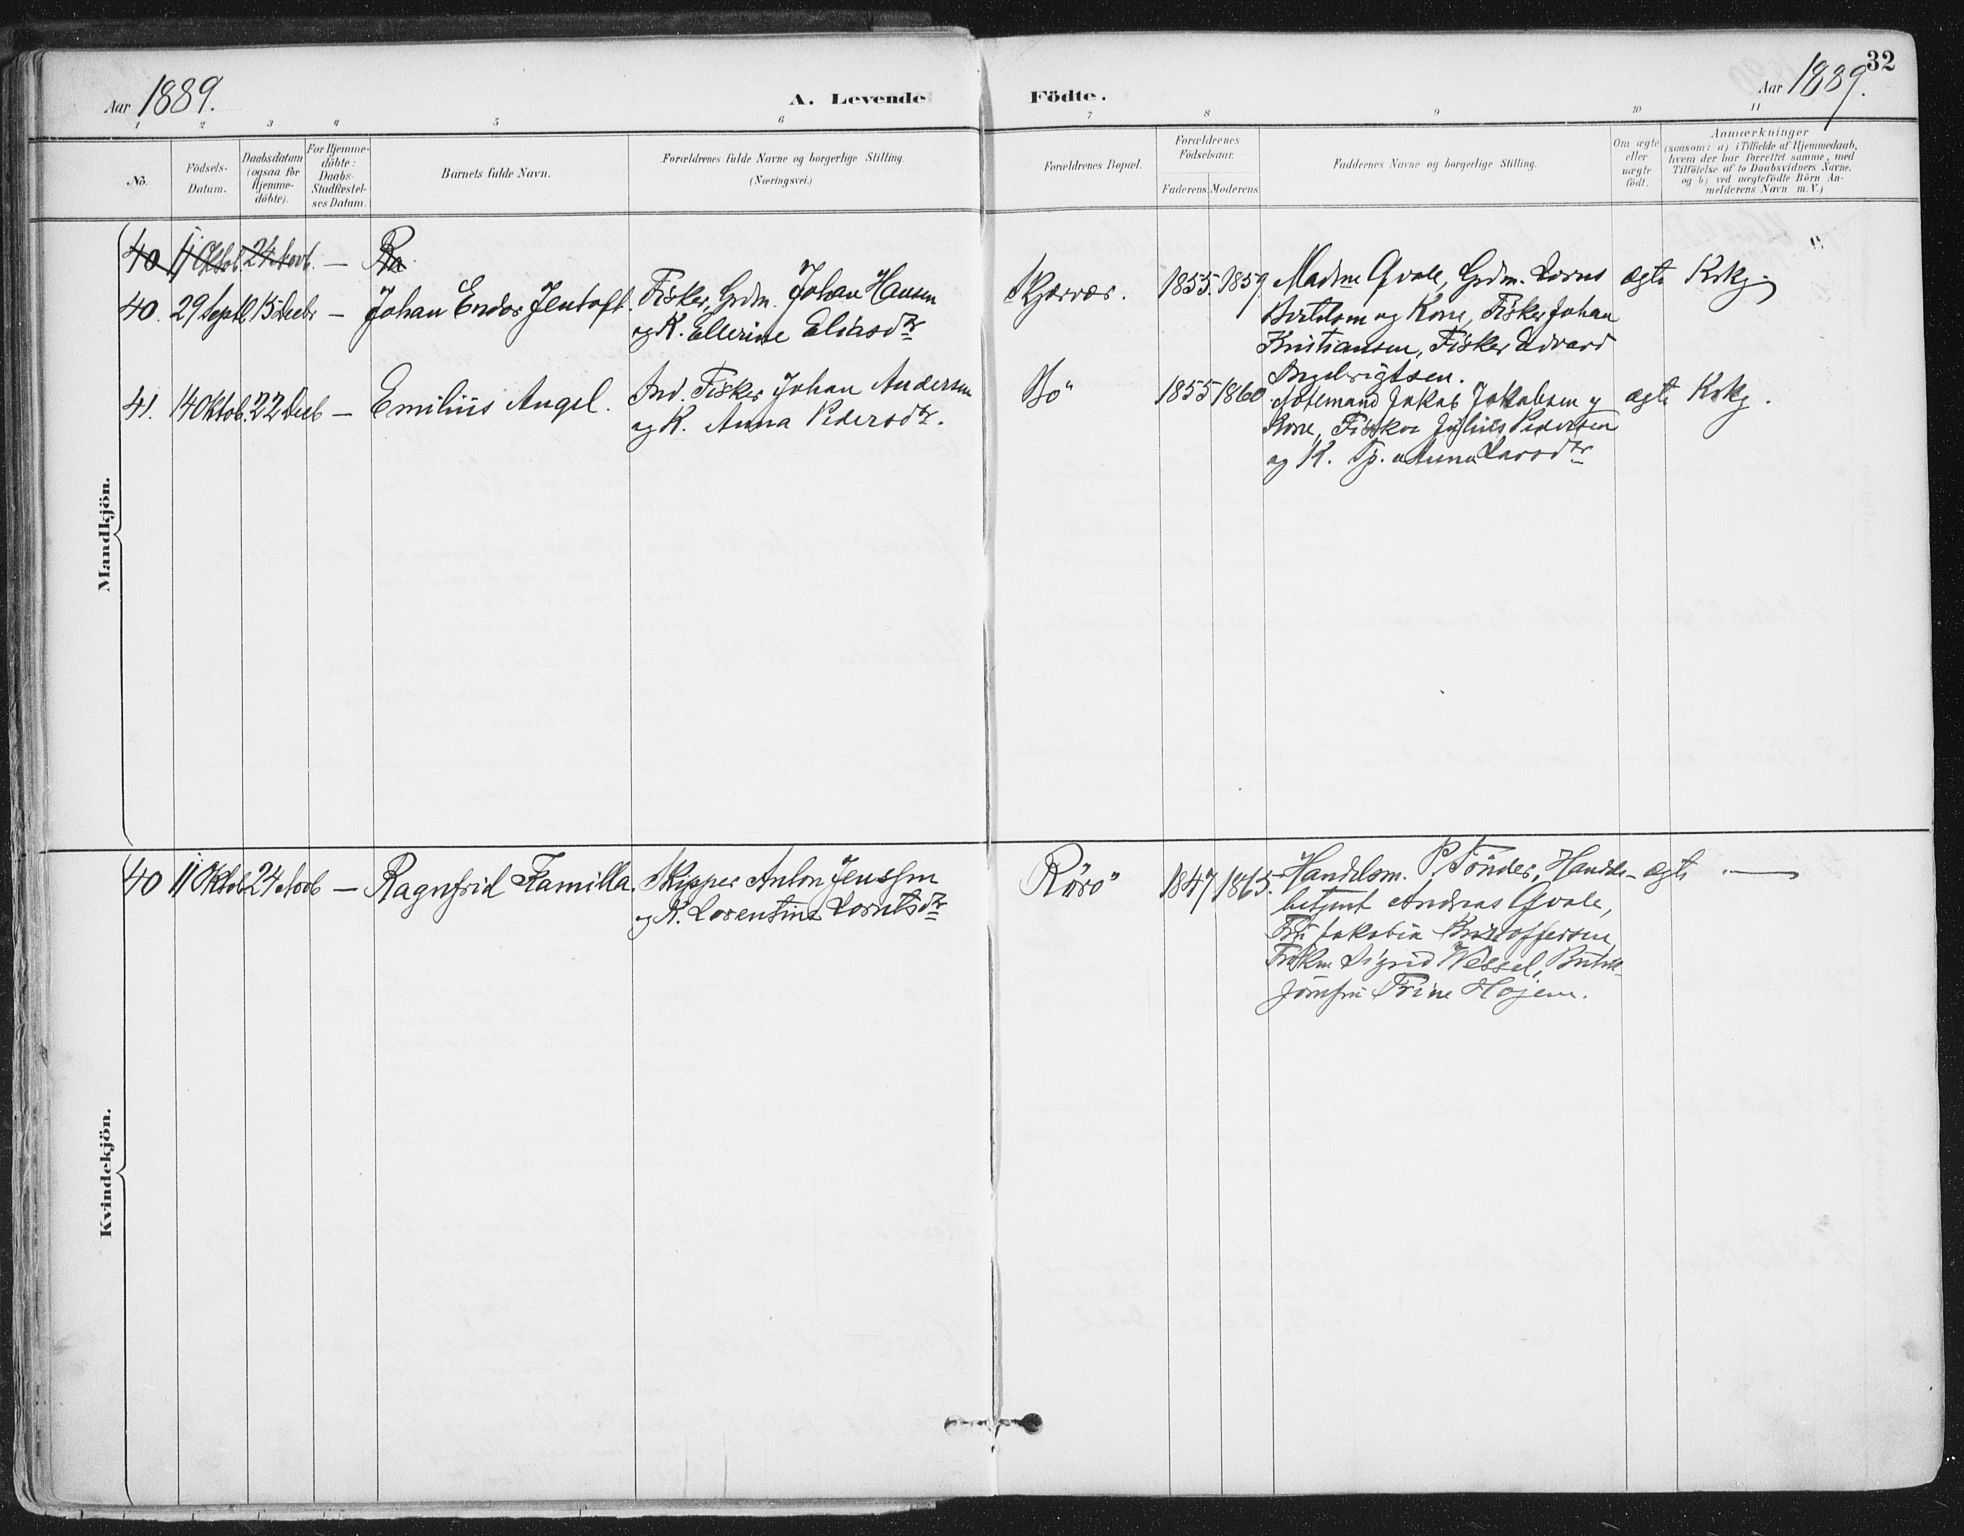 32
Aar 1889.
A. Levende Födte.
Aar 1889.
1 2 3 4 5 6 7 8 9 10 11
No.
Födsels-
Datum.
Daabsdatum
(ogsaa for
Hjemme-
döbte).
For Hjemme-
döbte:
Daabs-
Stadfæstel-
ses Datum.
Barnets fulde Navn.
Forældrenes fulde Navne og borgerlige Stilling.
(Næringsvei.)
Forældrenes Bopæl.
Forældrenes
Födselsaar.
Faderens. Moderens.
Faddernes Navne og borgerlige Stilling.
Om ægte
eller
uægte
født.
Anmærkninger
(saasom: a) i Tilfælde af Hjemmedaab,
hvem der har forrettet samme, med
Tilföielse af to Daabsvidners Navne,
og b) ved uægtefödte Börn An-
melderens Navn m. V.)
Mandkjön.
40 11 Oktob. 24 Novb. —
40. 29 Septb. 15 Decbr — Johan Endor Jentoft.
Fisker, Grdm. Johan Hansen
og K. Ellerine Eliasdtr
Skjærvær.
1855. 1859.
Madme Qvale, Grdm. Lorns
Bertilsen og Kone, Fisker Johan
Kristiansen, Fisker Edvard
Ingebrigtsen.
ægte
Krkj
41. 14 Oktob. 22 Decb — Emilius Angel.
Ind. Fisker Johan Andersen
og K. Anna Pedersdtr.
Bö
1855 1860
Notemand Jakob Jakobsen og
Kone, Fisker Julius Pedersen
og K. Tp. Anna Larsdtr
ægte
Krkj.
Kvindekjön.
40 11 Oktob 24 Novb — Ragnfrid Kamilla.
Skipper Anton Jenssen
og K. Lorentine Lorntsdtr
Rörö
1847 1865.
Handelsm. P. Tönder, Handls-
betjent Andreas Qvale,
Fru Jakobia Kristoffersen
Frøken Sigrid Wessel, Butik-
jomfru Trine Højem.
ægte
—